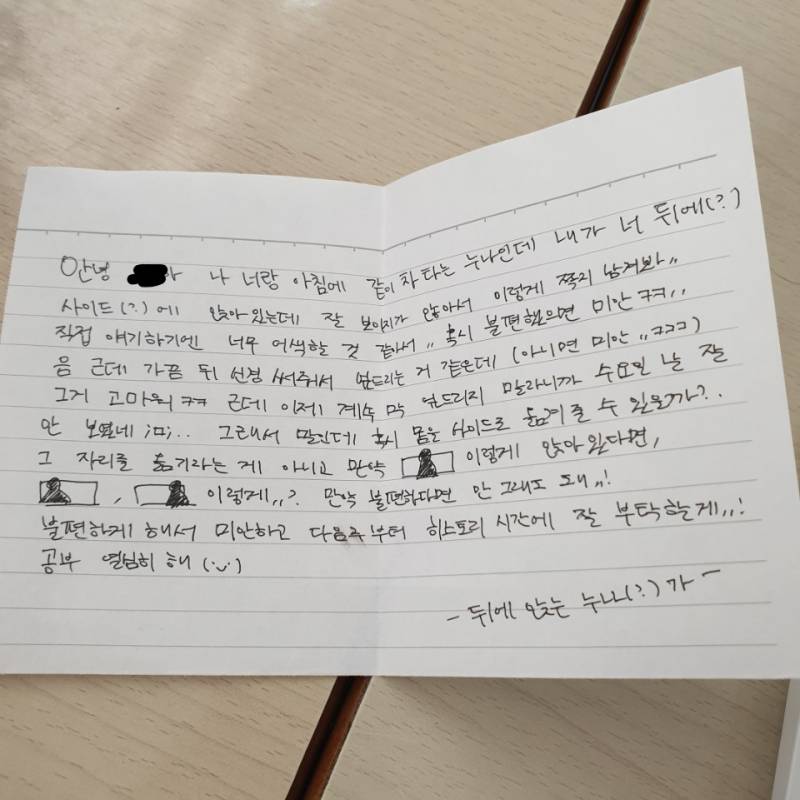 안녕 아 나 너랑 아침에 같이 차 타는 누나인데 내가 너 뒤에(?)
사이드(?)에 앉아 있는데 잘 보이지가 않아서 이렇게 쪽지 남겨봐,,
직접 얘기하기엔 너무 어색할 것 같아서,, 혹시 불편했으면 미안 ㅋㅋ,,
음 근데 가끔 뒤 신경 써줘서 엎드리는 거 같은데 (아니면 미안 ,,ㅋㅋㅋ)
그거 고마워 ㅋㅋ 근데 이제 계속 막 엎드리지 말라니까 수요일 날 잘
안 보였네 ;ㅁ;.. 그래서 말인데 혹시 몸을 사이드로 옮겨 줄 수 있을까?.
그 자리를 옮기라는 게 아니고 만약 이렇게 앉아있다면,
, 이렇게,,? 만약 불편하다면 안 그래도 돼,,!
불편하게 해서 미안하고 다음주부터 히스토리 시간에 잘 부탁할게,,!
공부 열심히 해 (·ᴗ·)
- 뒤에 앉는 누나(?)가 -